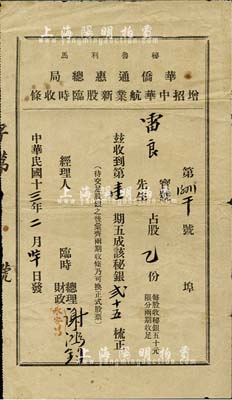 上海陽明拍賣
秘魯利馬
華僑通惠總局
增招中華航業新股臨時收條
第 號 埠
雷良 寶號 先生 占股 乙 份
每股收秘銀五十元
限分兩期收足
茲收到第 壹 期五成該秘銀 弍十五 梳正
(待交足股銀之後彙齊兩期收條乃可換正式股票)
經理人 臨時 總理 財政
中華民國十三年二月 日發
字第 號
上海陽明拍賣